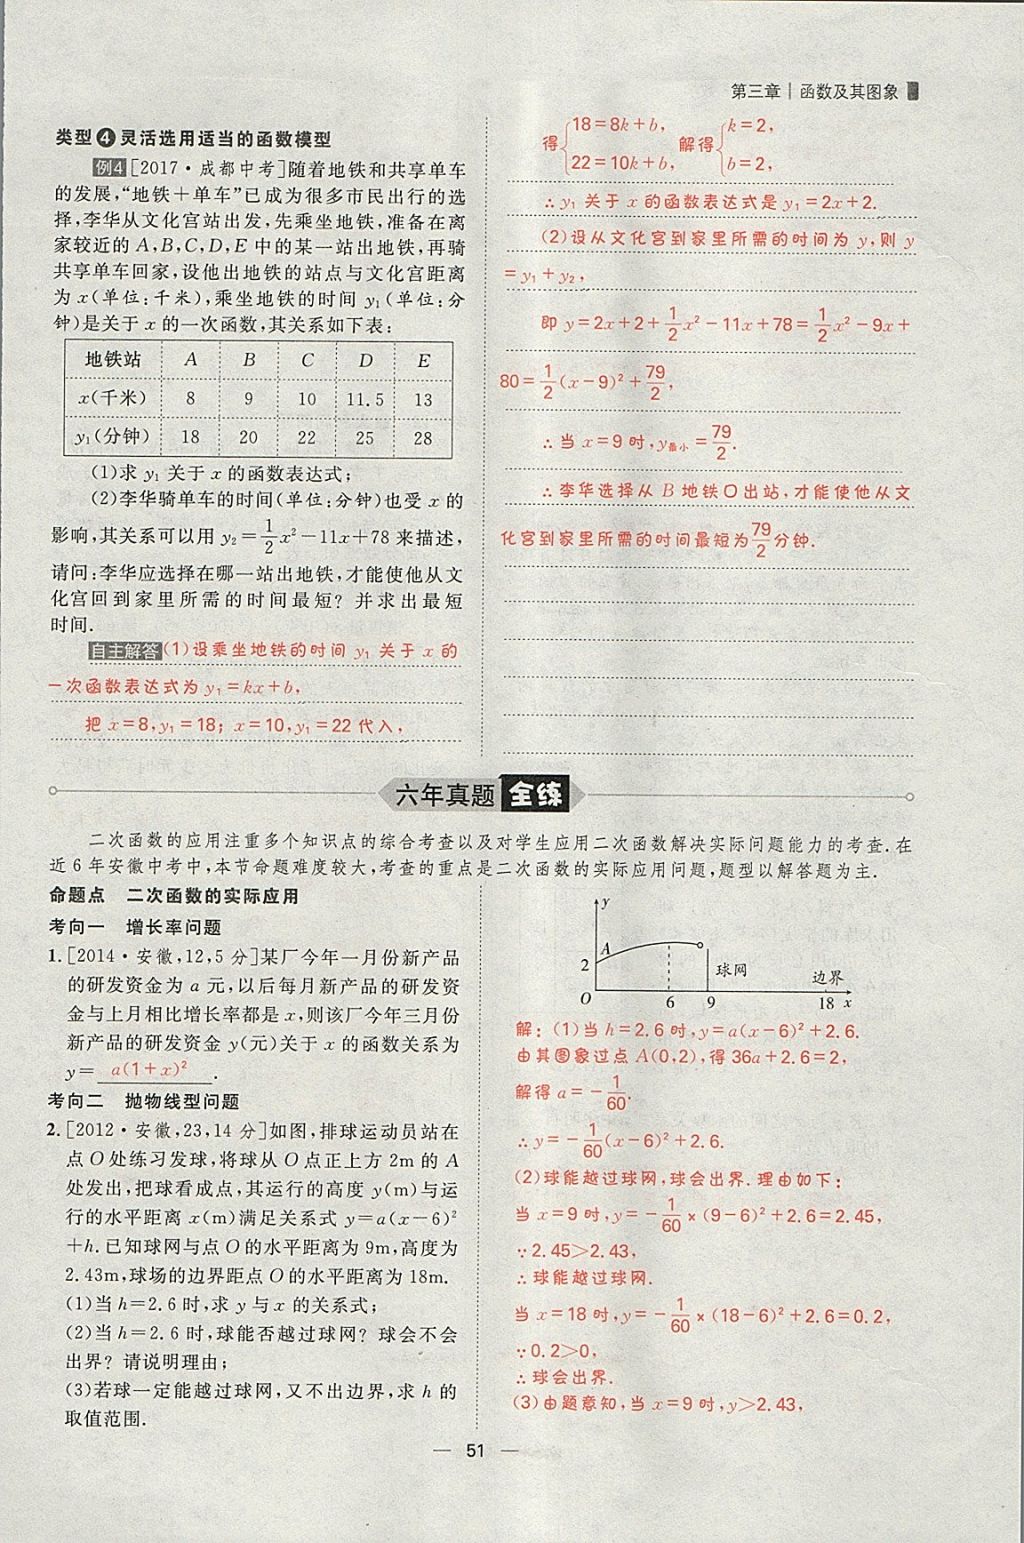 第三章｜函数及其图象
类型❹灵活选用适当的函数模型
例4[2017·成都中考]随着地铁和共享单车
的发展,“地铁＋单车”已成为很多市民出行的选
择,李华从文化宫站出发,先乘坐地铁,准备在离
家较近的A,B,C,D,E中的某一站出地铁,再骑
共享单车回家,设他出地铁的站点与文化宫距离
为x(单位:千米),乘坐地铁的时间y₁(单位:分
钟)是关于x的一次函数,其关系如下表:
地铁站 A B C D E
x(千米) 8 9 10 11.5 13
y₁(分钟) 18 20 22 25 28
(1)求y₁关于x的函数表达式;
(2)李华骑单车的时间(单位:分钟)也受x的
影响,其关系可以用y₂=1/2x²-11x+78来描述,
请问:李华应选择在哪一站出地铁,才能使他从文
化宫回到家里所需的时间最短? 并求出最短
时间.
自主解答(1)设乘坐地铁的时间y₁关于x的
一次函数表达式为y₁=kx+b,
把x=8,y₁=18; x=10,y₁=22代入,
得{18=8k+b, 22=10k+b, 解得{k=2, b=2,
∴y₁关于x的函数表达式是y₁=2x+2.
(2)设从文化宫到家里所需的时间为y,则y
=y₁+y₂,
即y=2x+2+1/2x²-11x+78=1/2x²-9x+
80=1/2(x-9)²+79/2,
∴当x=9时,y最小=79/2.
∴李华选择从B地铁口出站,才能使他从文
化宫到家里所需的时间最短为79/2分钟.
六年真题 全练
二次函数的应用注重多个知识点的综合考查以及对学生应用二次函数解决实际问题能力的考查.在
近6年安徽中考中,本节命题难度较大,考查的重点是二次函数的实际应用问题,题型以解答题为主.
命题点 二次函数的实际应用
考向一 增长率问题
1.[2014·安徽,12,5分]某厂今年一月份新产品
的研发资金为a元,以后每月新产品的研发资
金与上月相比增长率都是x,则该厂今年三月份
新产品的研发资金y(元)关于x的函数关系为
y= a(1+x)² .
考向二 抛物线型问题
2.[2012·安徽,23,14分]如图,排球运动员站在
点O处练习发球,将球从O点正上方2m的A
处发出,把球看成点,其运行的高度y(m)与运
行的水平距离x(m)满足关系式y=a(x-6)²
+h.已知球网与点O的水平距离为9m,高度为
2.43m,球场的边界距点O的水平距离为18m.
(1)当h=2.6时,求y与x的关系式;
(2)当h=2.6时,球能否越过球网? 球会不会
出界? 请说明理由;
(3)若球一定能越过球网,又不出边界,求h的
取值范围.
y
A
2
球网
边界
O 6 9 18 x
解: (1)当h=2.6时,y=a(x-6)²+2.6.
由其图象过点A(0,2),得36a+2.6=2,
解得a=-1/60.
∴y=-1/60(x-6)²+2.6.
(2)球能越过球网,球会出界.理由如下:
当x=9时,y=-1/60×(9-6)²+2.6=2.45,
∵2.45>2.43,
∴球能越过球网.
当x=18时,y=-1/60×(18-6)²+2.6=0.2,
∵0.2>0,
∴球会出界.
(3)由题意知,当x=9时,y>2.43,
— 51 —